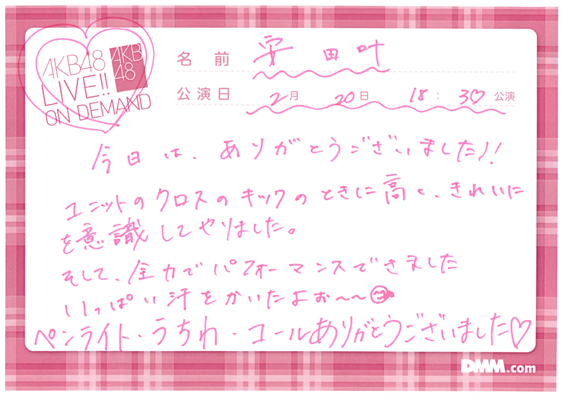 AKB48
LIVE!!
ON DEMAND
AKB
48
名前 安田叶
公演日 2月 20日 18:30 公演
今日は、ありがとうございました!!
ユニットのクロスのキックのときに高く、きれいに
を意識してやりました。
そして、全力でパフォーマンスできました
いっぱい汗をかいたよぉ〜〜
ペンライト・うちわ・コールありがとうございました♡
DMM.com